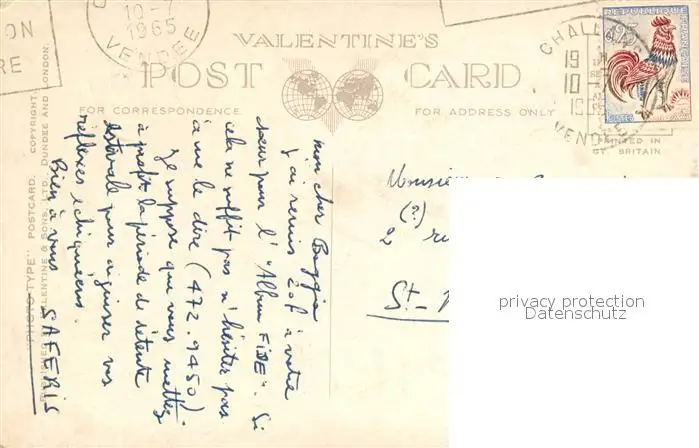 10-7
1965
VENDEE
ON
RE
VALENTINE'S
POST CARD
FOR CORRESPONDENCE
FOR ADDRESS ONLY
CHALLA
19
10-
VENDEE
PRINTED IN
GT. BRITAIN
"PHOTOTYPE" POSTCARD. COPYRIGHT.
VALENTINE & SONS, LTD., DUNDEE AND LONDON.
mon cher Boggio
J'ai remis 20f à votre
sœur pour l'"Album FIDE". Si
cela ne suffit pas n'hésitez pas
à me le dire (472.9450).
Je suppose que vous mettez
à profit la période de détente
estivale pour aiguiser vos
réflexes échiquéens.
Bien à vous
SAFERIS
Monsieur
(?)
2 ru
St-
privacy protection
Datenschutz